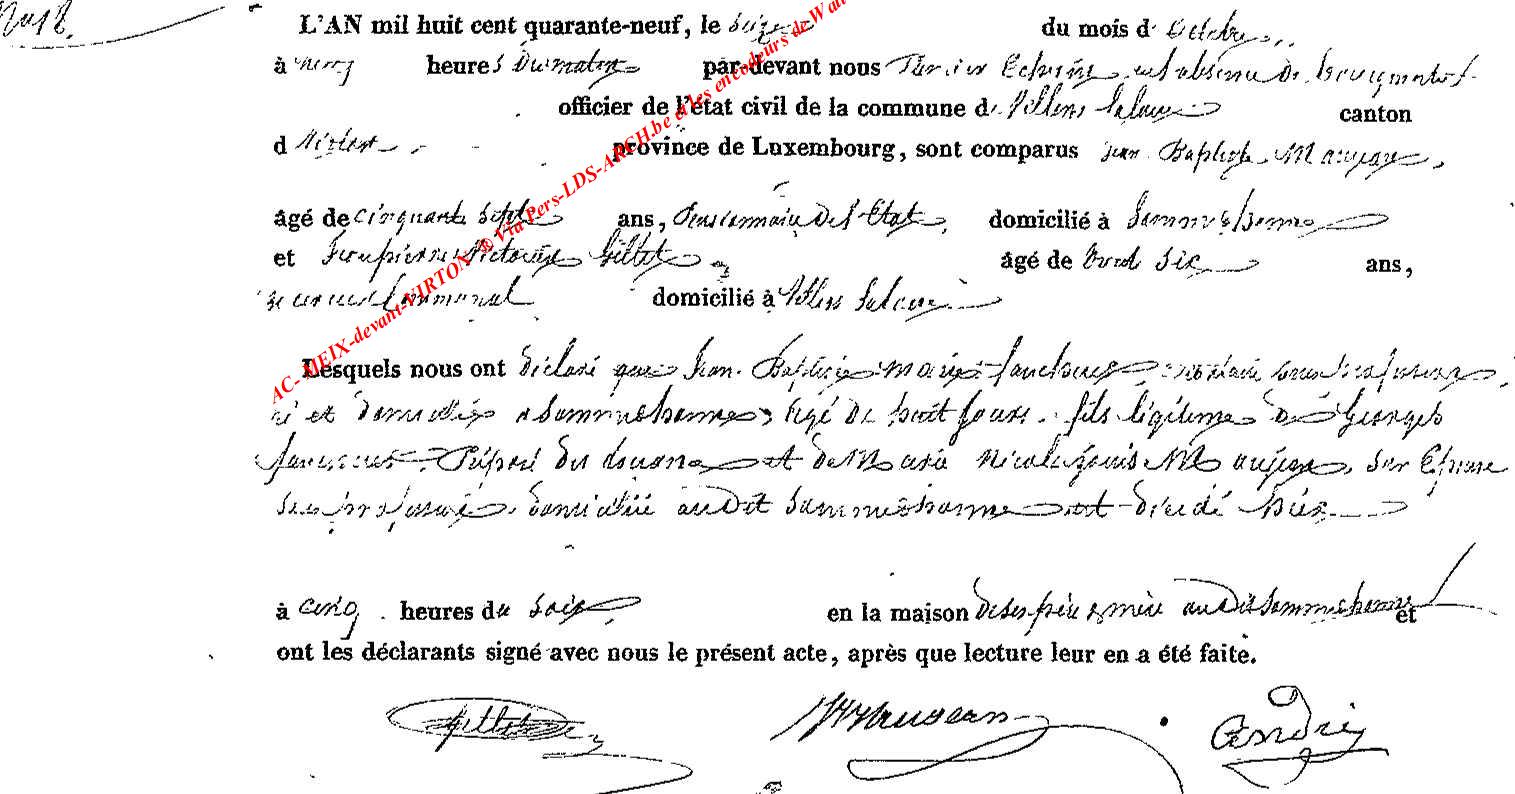 L'AN mil huit cent quarante-neuf, le seize du mois d'octobre
à heures Du matin par devant nous Echevin en l'absence du bourgmestre
officier de l'état civil de la commune de Villers laloue canton
d Virton province de Luxembourg, sont comparus jean Baptiste Maujean,
âgé de cinquante sept ans, Pensionnaire de l'Etat, domicilié à Sommethonne
et Victoire Gillet âgé de trente six ans,
communal domicilié à Villers Laloue
Lesquels nous ont déclaré que Jean Baptiste marie sans profession,
né et domicilié à Sommethonne, âgé de huit jours, fils légitime de Georges
Préposé des douanes et de Marie Nicole Maujean, son Epouse
sans profession domiciliée audit Sommethonne est décédé hier
à cinq heures du soir en la maison de ses père & mère audit Sommethonne et
ont les déclarants signé avec nous le présent acte, après que lecture leur en a été faite.
Maujean
AC-MEIX-devant-VIRTON ® Via Pers-LDS-ARCH.be et les encodeurs de Wal